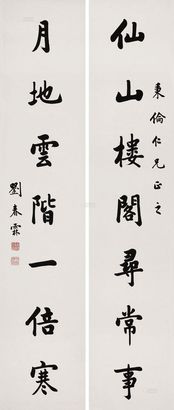 東倫仁兄正之
仙山樓閣尋常事
月地雲階一倍寒
劉春霖